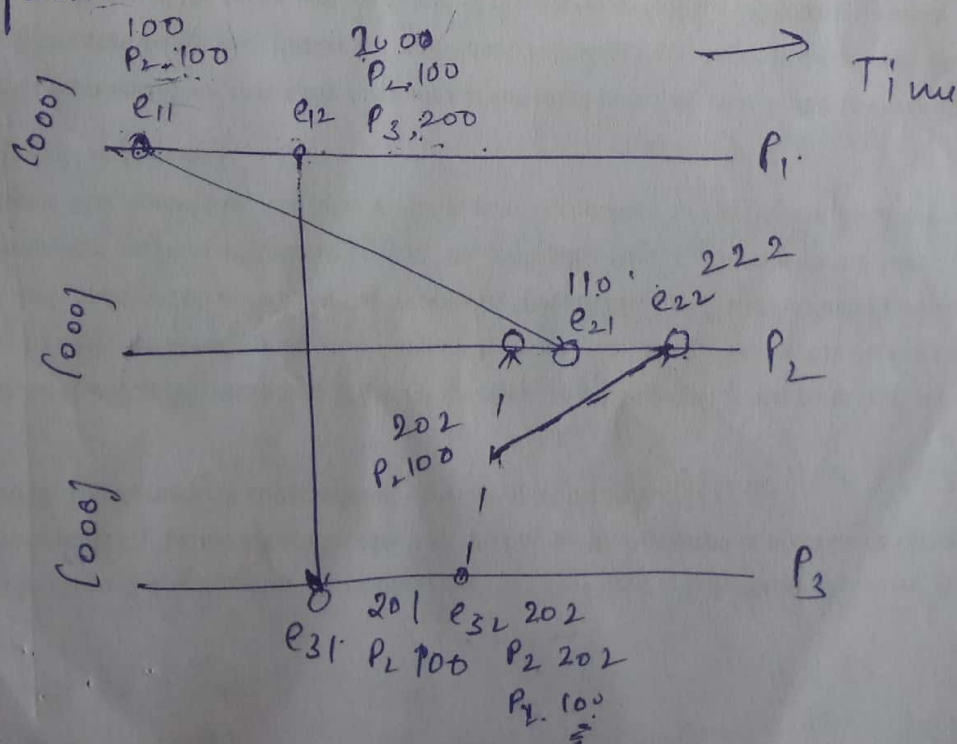 100
P2,100
e11
e12
2000
P2,100
P3,200
Time
[000]
P1.
222
110
e21
e22
[000]
P2
202
P2 100
[000]
P3
e31.
201
P2 100
e32
202
P2 202
100